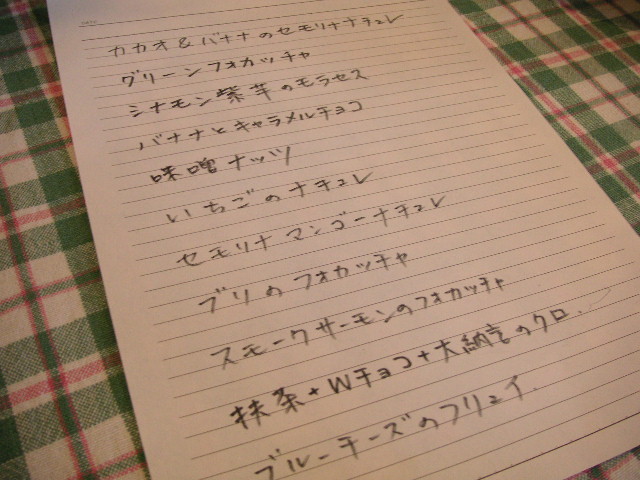 カカオ&バナナのセモリナナチュレ
グリーンフォカッチャ
シナモン紫芋のモラセス
バナナとキャラメルチョコ
味噌ナッツ
いちごのナチュレ
セモリナマンゴーナチュレ
ブリのフォカッチャ
スモークサーモンのフォカッチャ
抹茶+Wチョコ+大納言のクロ.
ブルーチーズのフリュイ.